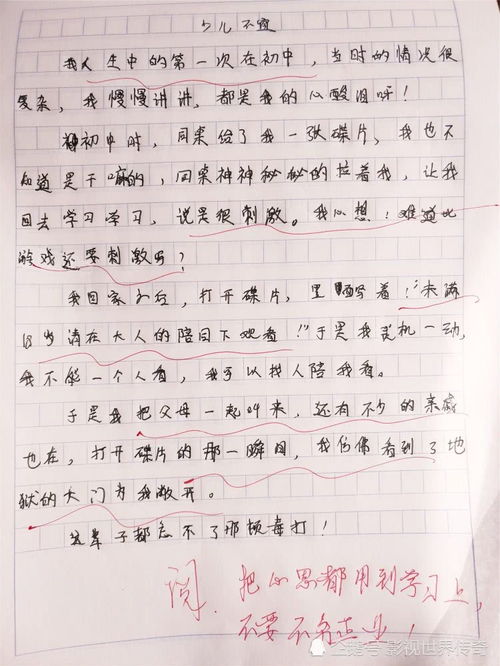 少儿不宜
我人生中的第一次在初中，当时的情况很
复杂，我慢慢讲讲，都是我的心酸泪呀！
初中时，同桌给了我一张碟片，我也不
知道是干嘛的，同桌神神秘秘的拉着我，让我
回去学习学习，说是很刺激。我心想！难道比
游戏还要刺激吗？
我回家以后，打开碟片，里面写着！"未满
18岁请在大人的陪同下观看！"于是我灵机一动，
我不能一个人看，我可以找人陪我看。
于是我把父母一起叫来，还有不少的亲戚
也在，打开碟片的那一瞬间，我仿佛看到了地
狱的大门为我敞开。
这辈子都忘不了那顿毒打！
阅。把心思都用到学习上，
不要不务正业！
企鹅号 影视世界传奇